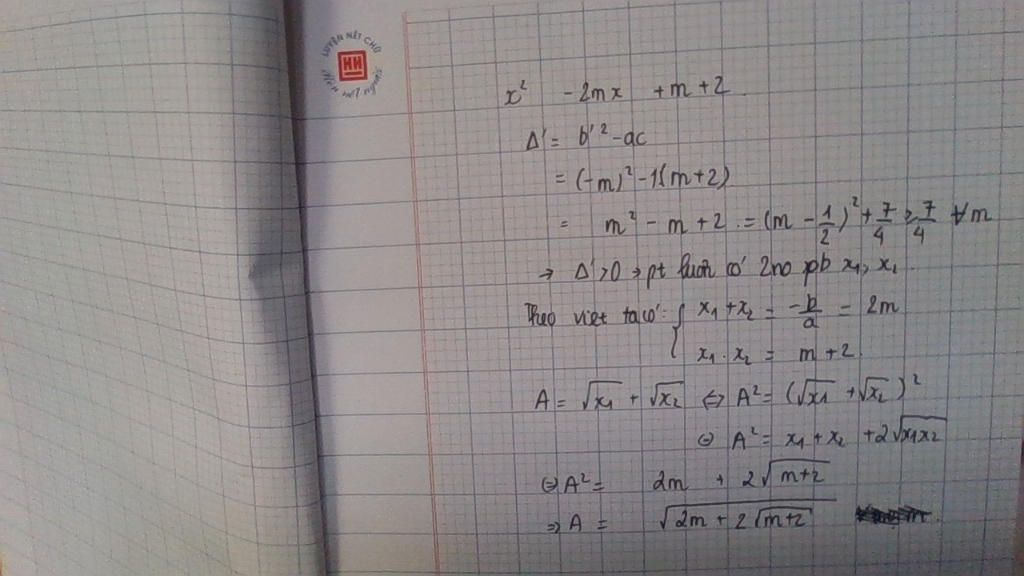 LUYỆN NÉT CHỮ
HH
x² - 2mx + m + 2
Δ' = b'² - ac
= (-m)² - 1(m+2)
= m² - m + 2 = (m - 1/2)² + 7/4 ≥ 7/4 ∀m
→ Δ' > 0 → pt luôn có 2no pb x₁, x₂
Theo viet ta có: { x₁ + x₂ = -b/a = 2m
x₁ . x₂ = m + 2
A = √x₁ + √x₂ ⇔ A² = (√x₁ + √x₂)²
⇔ A² = x₁ + x₂ + 2√x₁x₂
⇔ A² = 2m + 2√m+2
⇒ A = √2m + 2√m+2